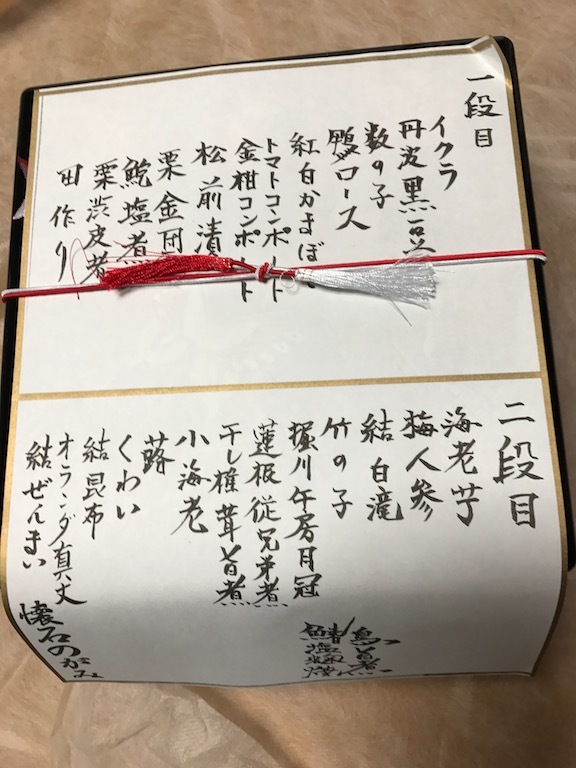 一段目
イクラ
丹波黒豆
数の子
鴨ロース
紅白かまぼこ
トマトコンポート
金柑コンポート
松前漬
栗金団
鮑塩煮
栗渋皮煮
田作り
二段目
海老芋
梅人参
結白滝
竹の子
堀川午房月冠
蓮根従兄弟煮
干し椎茸旨煮
小海老
蕗
くわい
結昆布
オランダ真丈
結ぜんまい
懐石のがみ